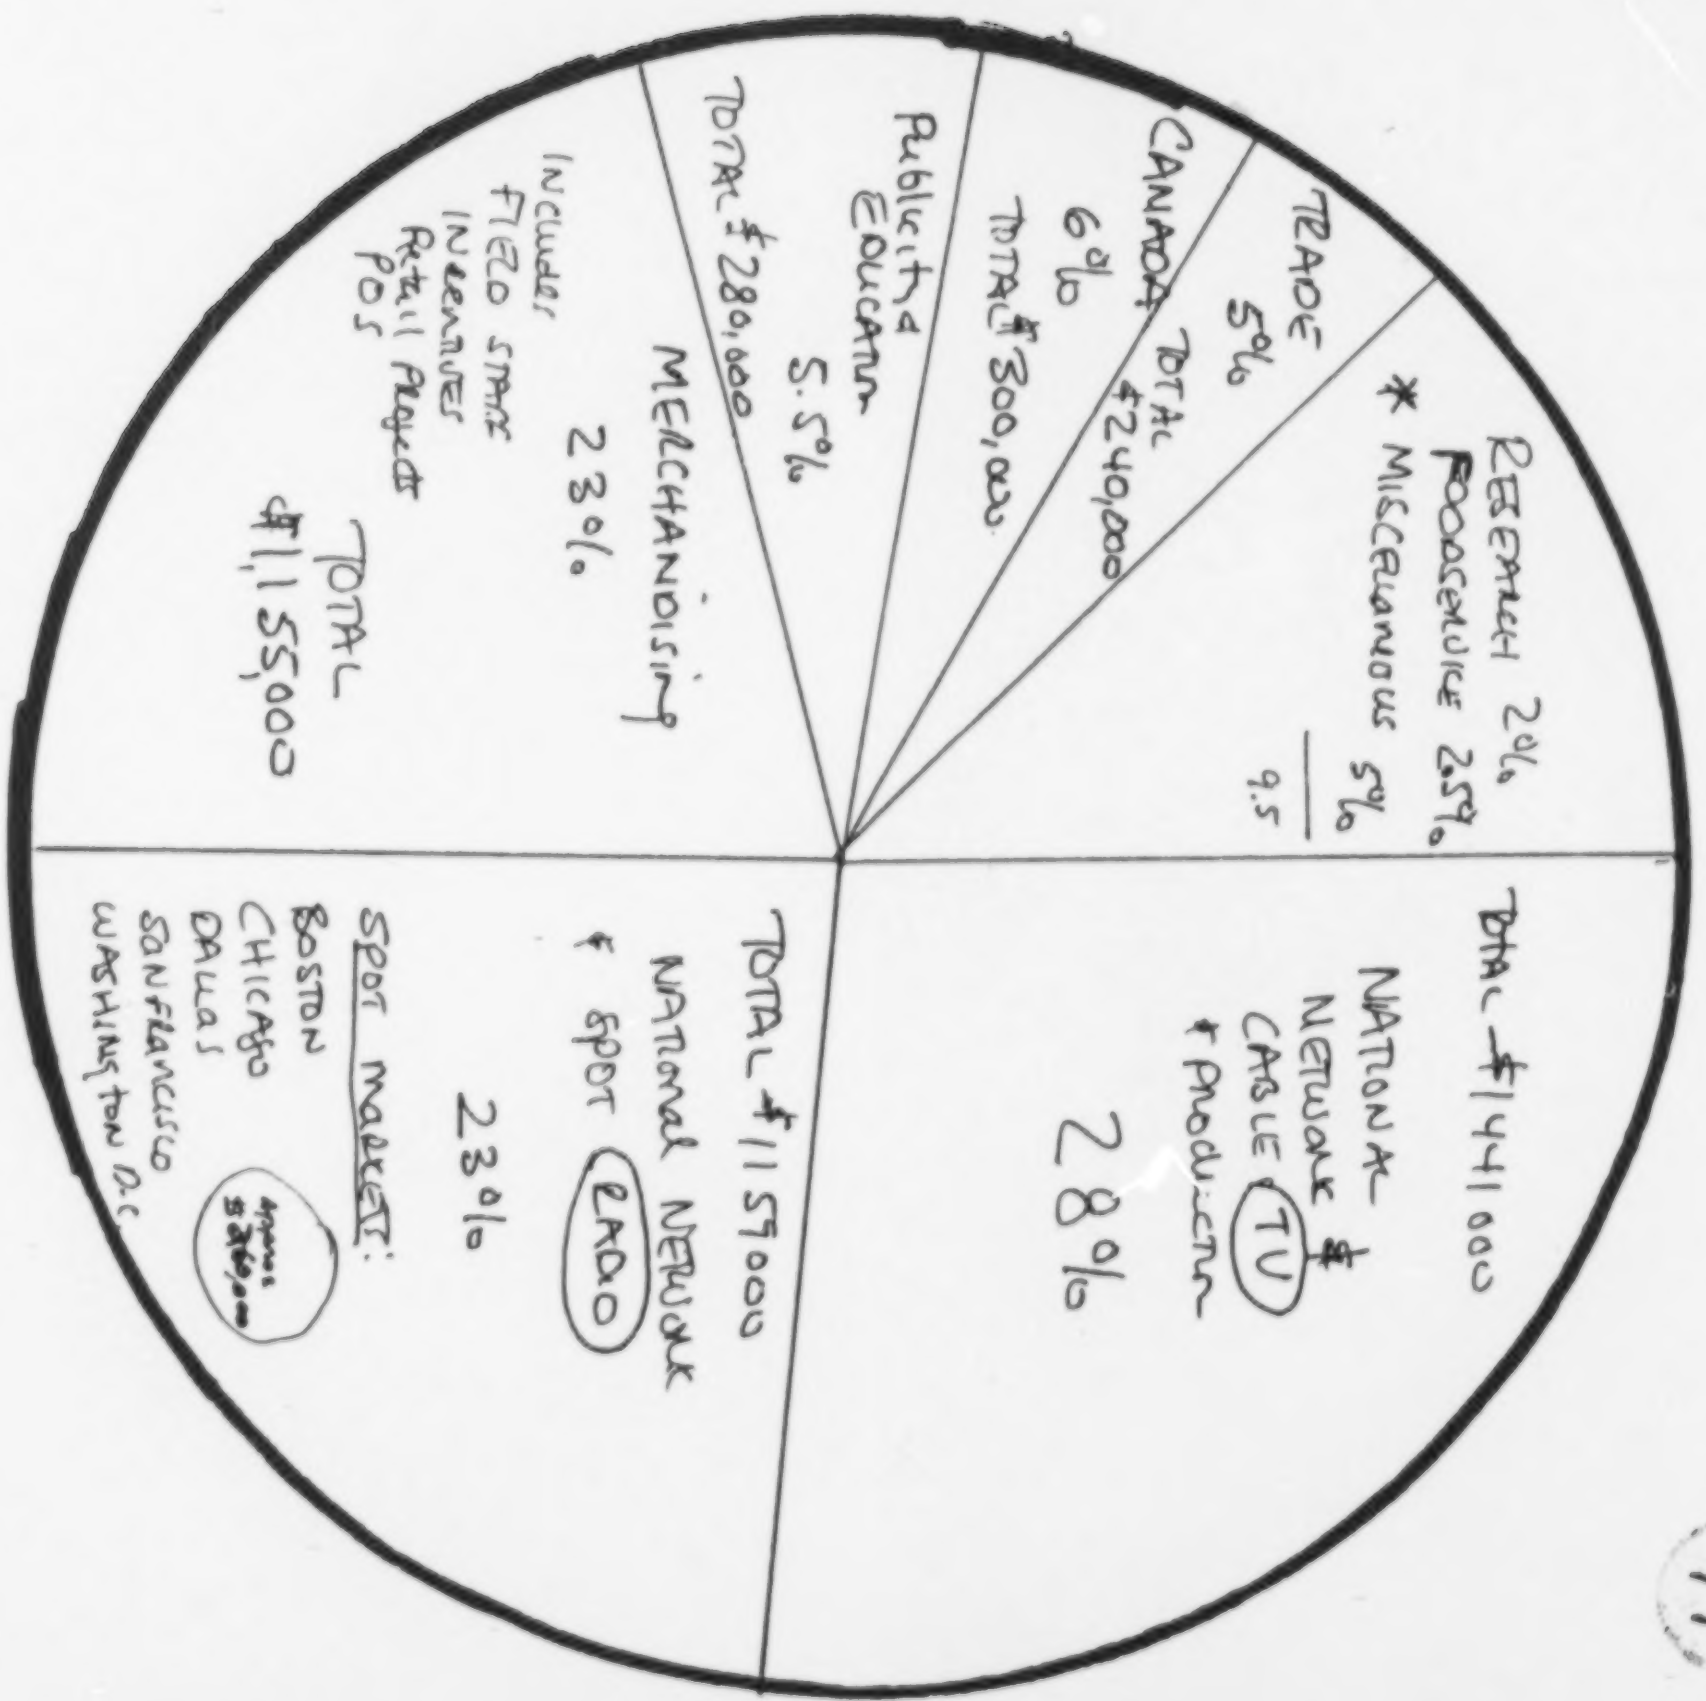 TOTAL $1441000
NATIONAL
NETWORK &
CABLE TV
& Production
28%
TOTAL $1159000
NATIONAL NETWORK
& SPOT RADIO
23%
SPOT MARKETS:
BOSTON
CHICAGO
DALLAS
SAN FRANCISCO
WASHINGTON D.C.
MERCHANDISING
23%
Includes
FIELD STAFF
INCENTIVES
Retail Projects
POS
TOTAL
$1,155,000
Publicity &
EDUCATION
5.5%
TOTAL $280,000
CANADA
6%
TOTAL $300,000
TRADE
5%
TOTAL
$240,000
RESEARCH 2%
FOODSERVICE 2.5%
* MISCELLANEOUS 5%
9.5